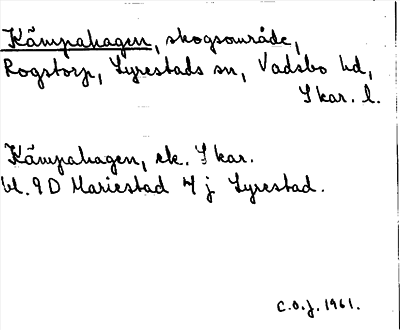 Kämpahagen, skogsområde,
Rogstorp, Lyrestads sn, Vadsbo hd,
Skar. l.
Kämpahagen, ek. Skar.
bl. 9D Mariestad 7 j Lyrestad.
C.O.J. 1961.